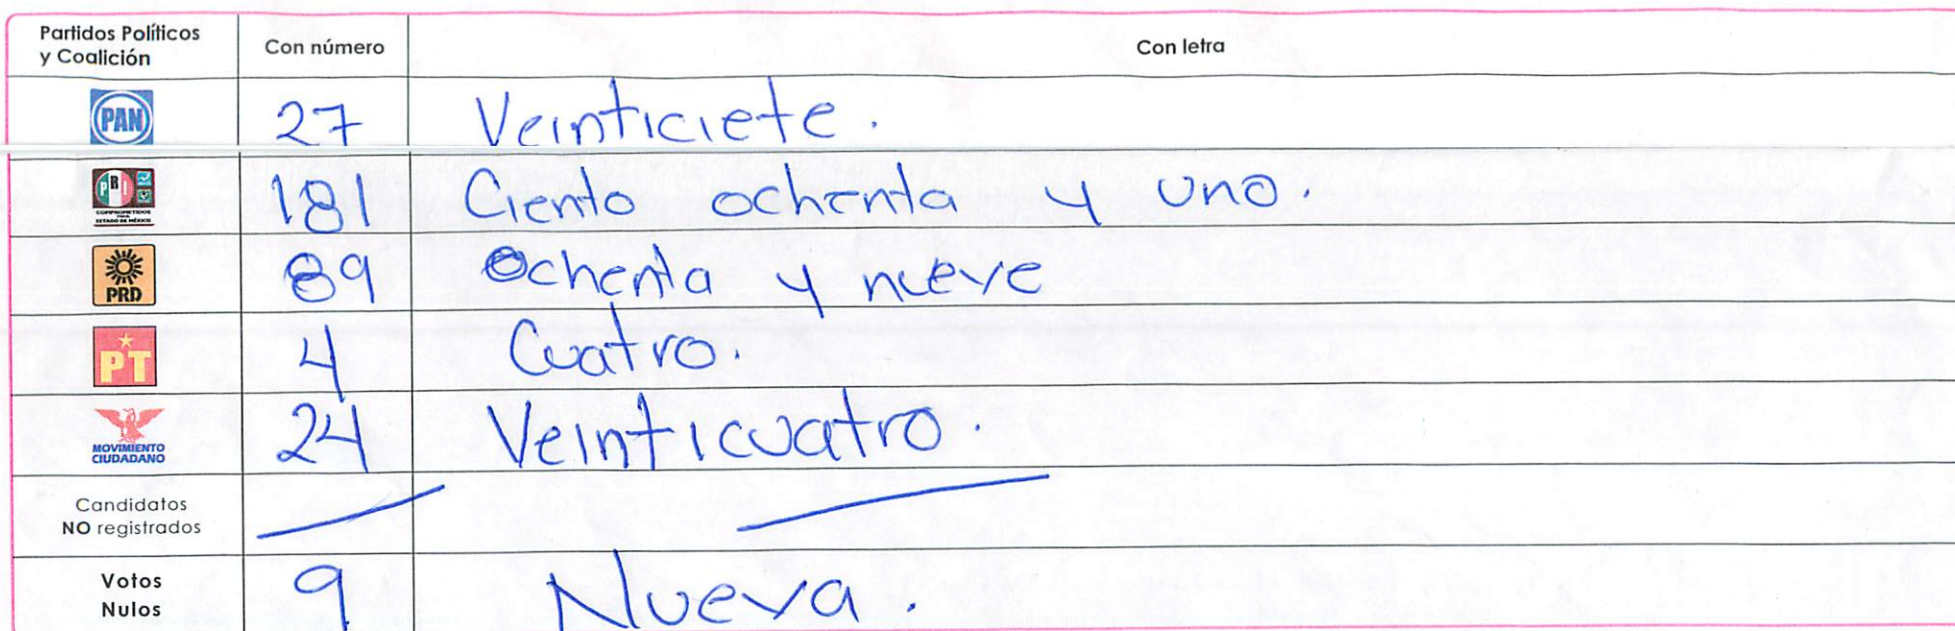 Partidos Políticos y Coalición Con número Con letra
PAN 27 Veinticiete.
PRI COMPROMETIDOS POR EL ESTADO DE MÉXICO 181 Ciento ochenta y uno.
PRD 89 Ochenta y nueve
PT 4 Cuatro.
MOVIMIENTO CIUDADANO 24 Veinticuatro.
Candidatos NO registrados
Votos Nulos 9 Nueva.